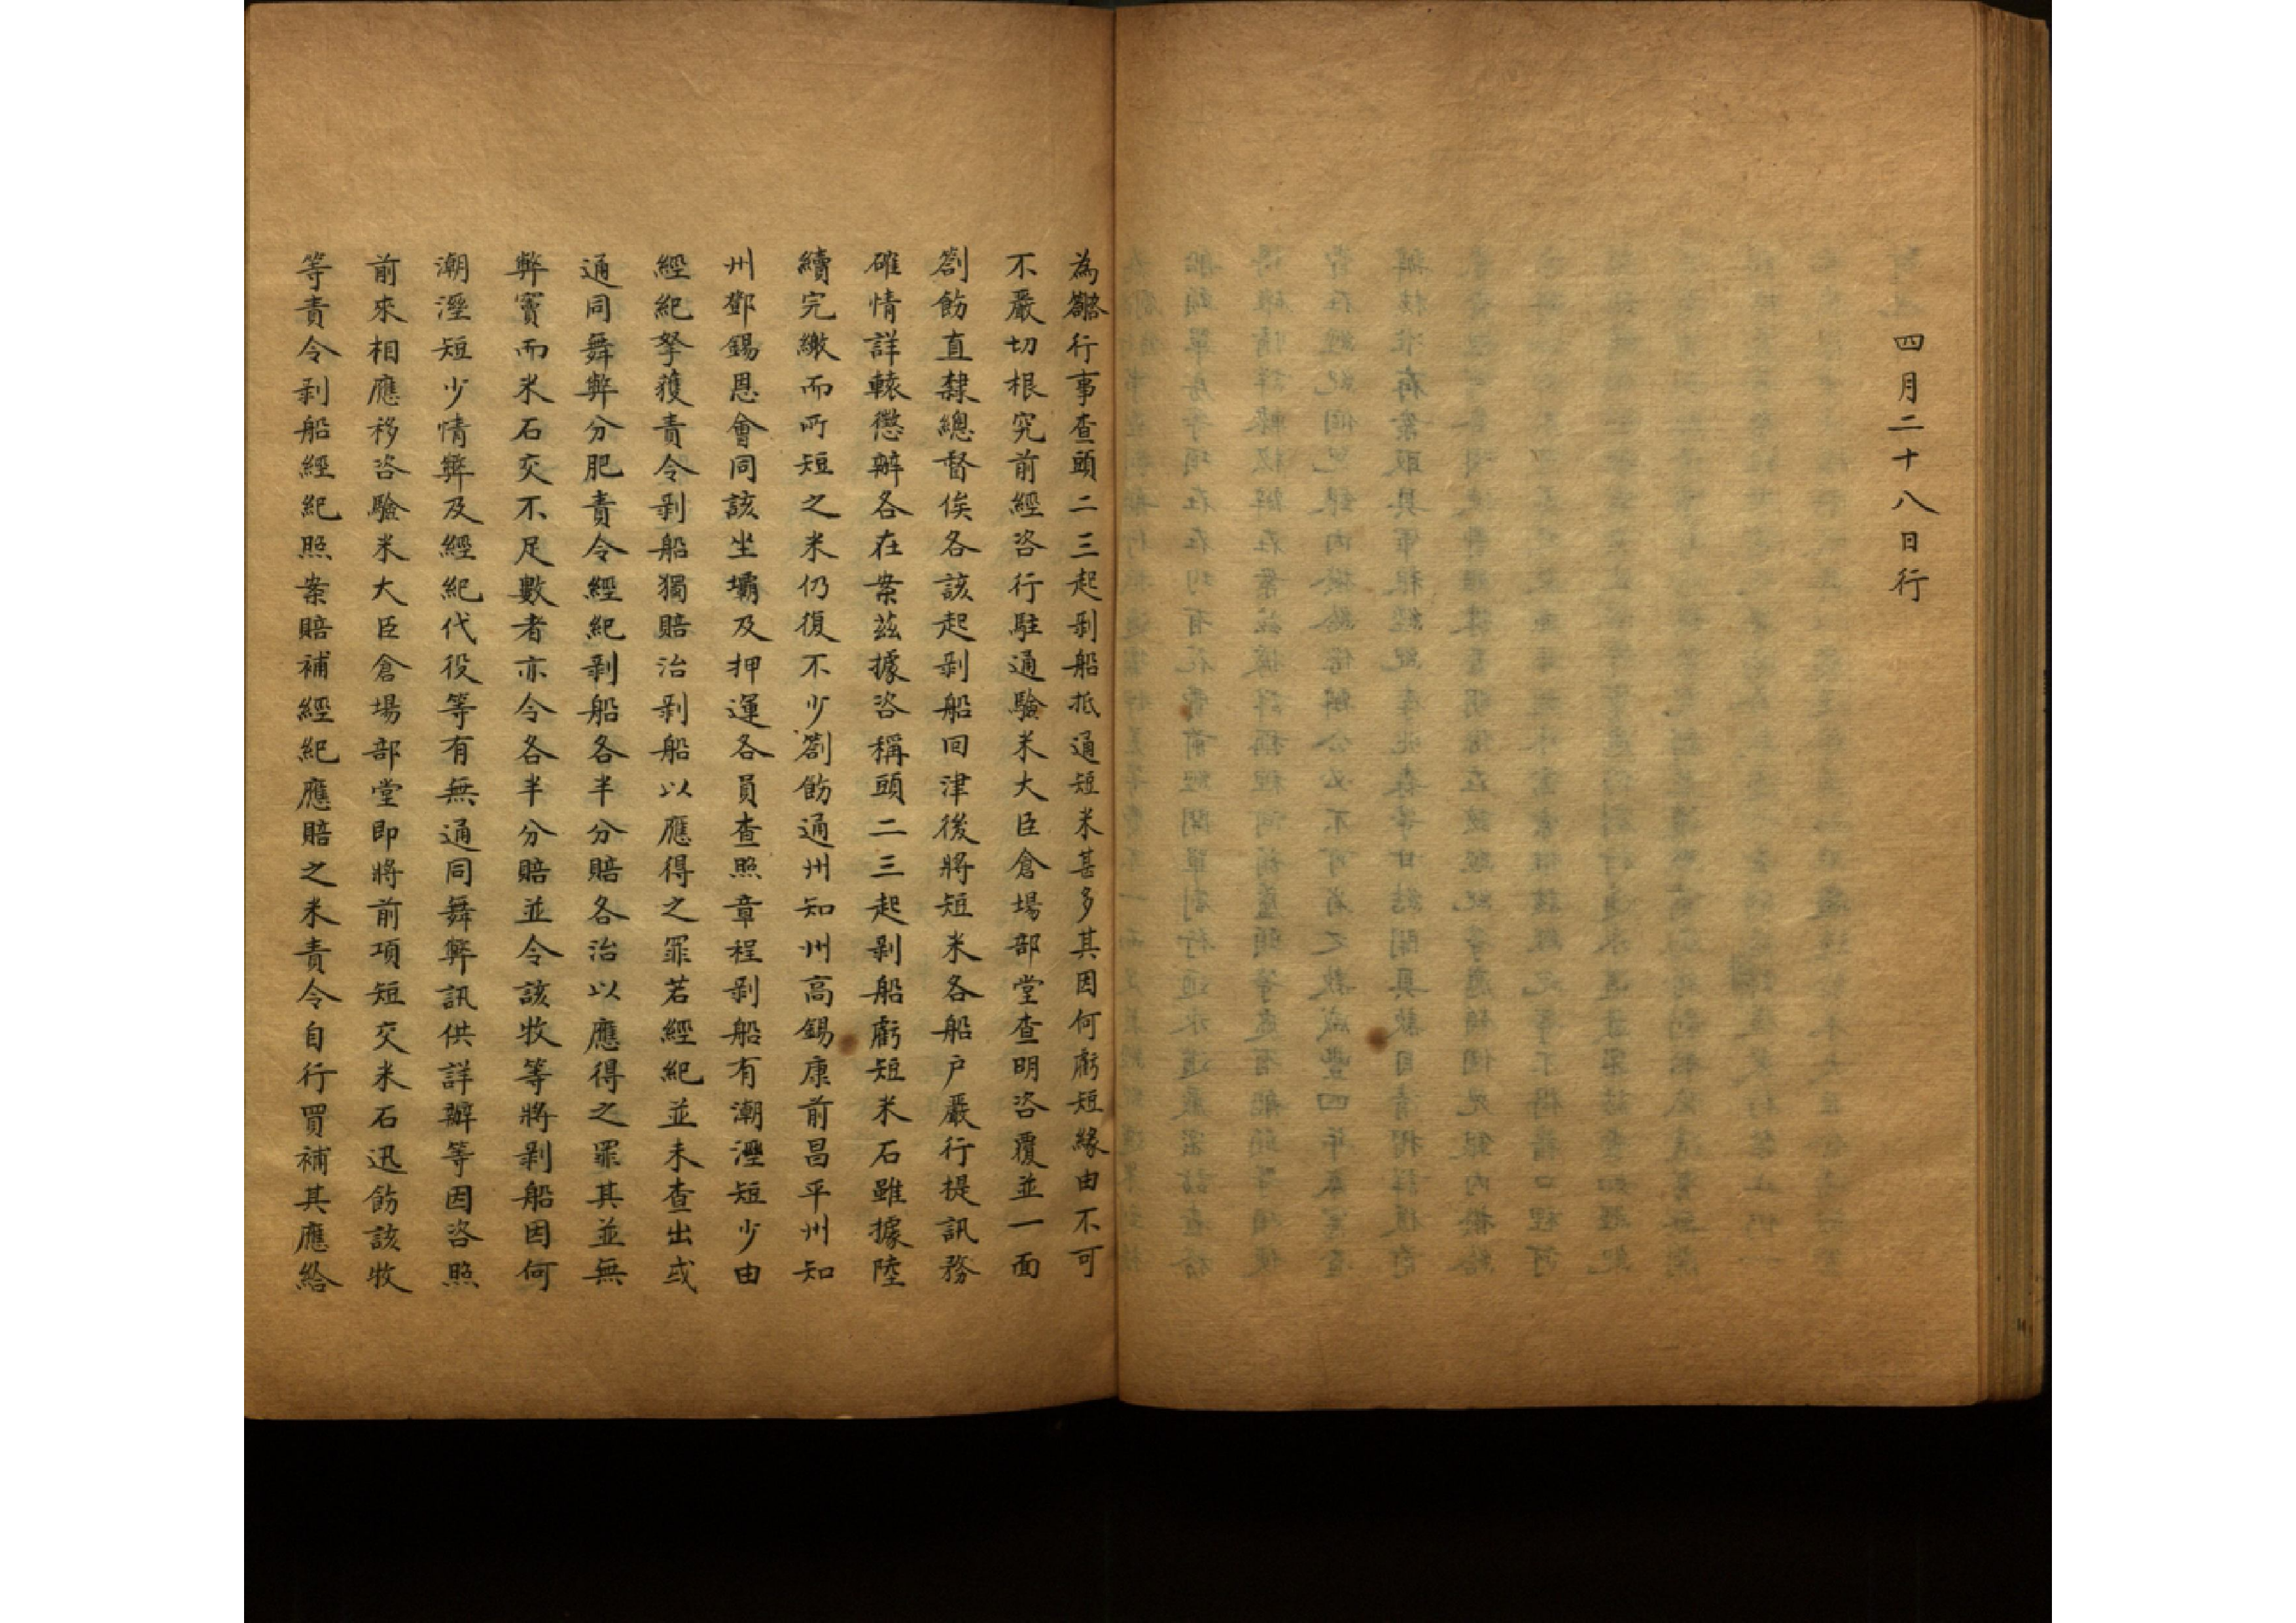 四月二十八日行
為劄行事查頭二三起剥船抵通短米甚多其因何虧短緣由不可
不嚴切根究前經咨行駐通驗米大臣倉場部堂查明咨覆並一面
劄飭直隸總督俟各該起剥船囘津後將短米各船户嚴行提訊務
確情詳轅懲辦各在案茲據咨稱頭二三起剥船虧短米石雖據陸
續完繳而所短之米仍復不少劄飭通州知州高錫康前昌平州知
州鄧錫恩會同該坐壩及押運各員查照章程剥船有潮溼短少由
經紀拏獲責令剥船獨賠治剥船以應得之罪若經紀並未查出或
通同舞弊分肥責令經紀剥船各半分賠各治以應得之罪其並無
弊竇而米石交不足數者亦令各半分賠並令該牧等將剥船因何
潮溼短少情弊及經紀代役等有無通同舞弊訊供詳辦等因咨照
前來相應移咨驗米大臣倉場部堂即將前項短交米石迅飭該牧
等責令剥船經紀照案賠補經紀應賠之米責令自行買補其應給